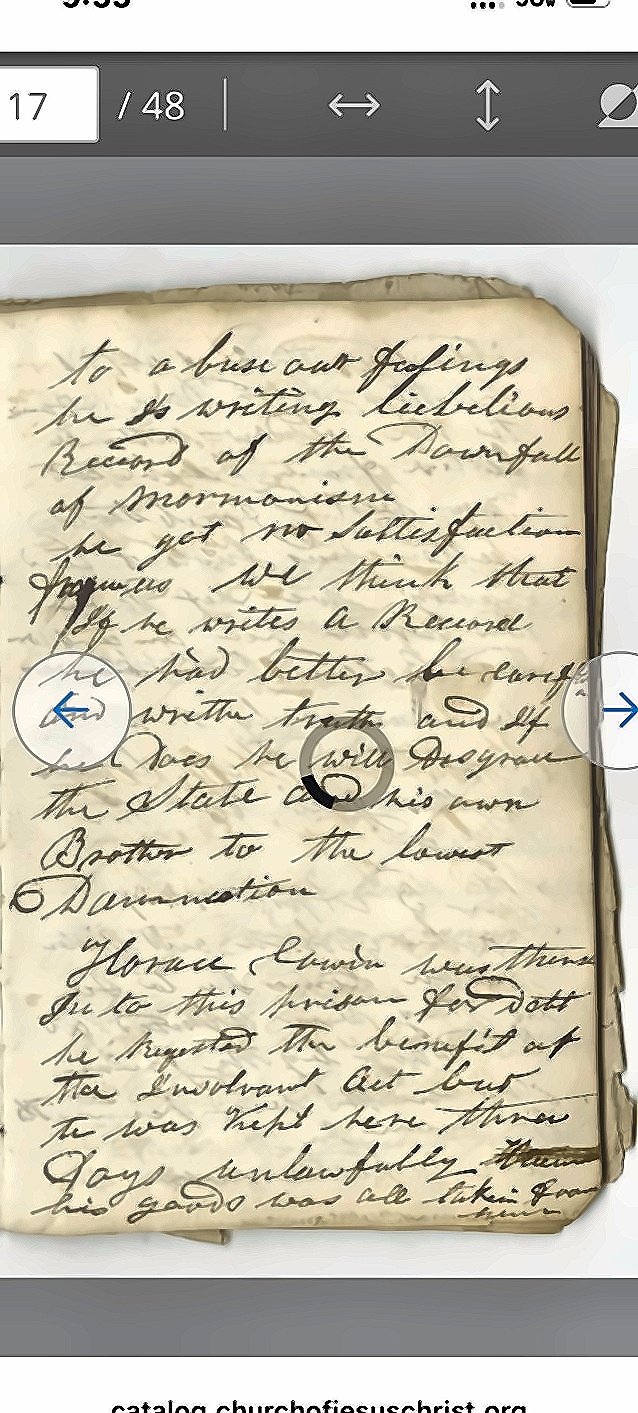 17 / 48
to a buse our feelings
he Is writing liebelious
Record of the Downfall
of Mormonism
he got no Sattisfaction
from us we think that
If he writes A Record
he had better be caref
and writhe truth and If
he Does he will Disgrace
the State and his own
Brother to the lowest
Damnation
Horace was thrus
In to this prison for Dett
he Regested the benefit of
the Insolvant Act but
he was Kept here three
Days unlawfully
his goods was all taken from
him
catalog.churchofjesuschrist.org